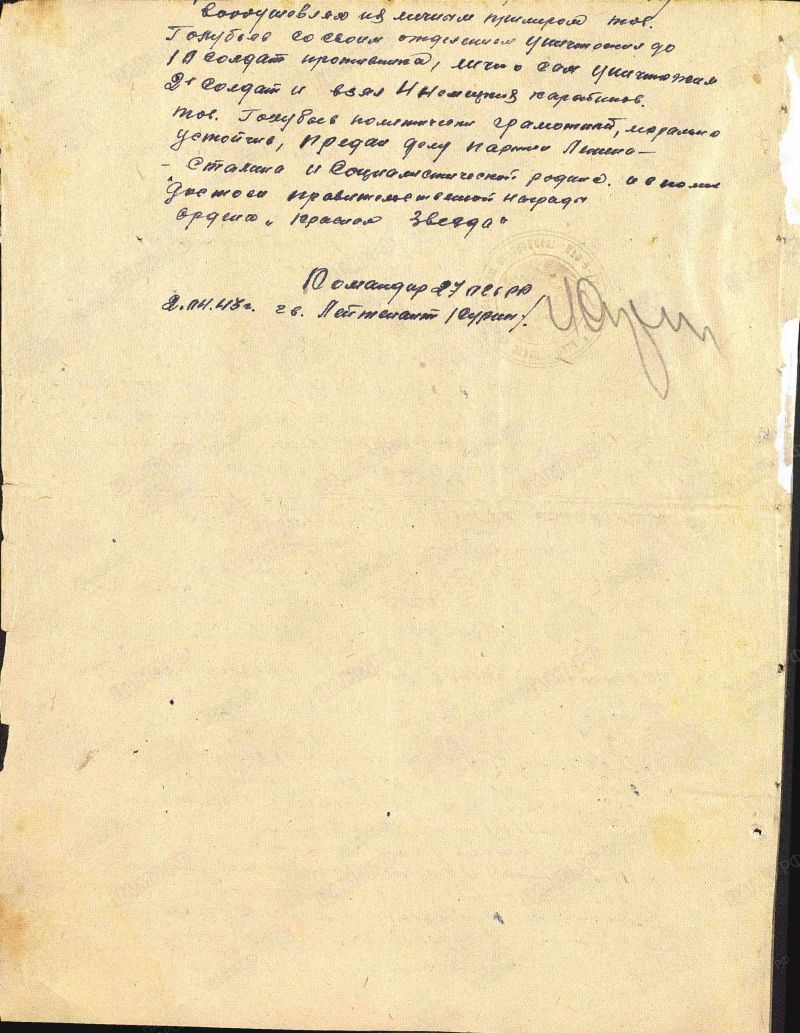 воодушевляя их личным примером тов.
Голубьев со своим отделением уничтожил до
10 солдат противника, лично сам уничтожил
2х солдат и взял 4 немецких карабинов.
тов. Голубьев политически грамотный, морально
устойчив, предан делу партии Ленина-
- Сталина и Социалистической родина.
Достоен правительственной награды
ордена "Красная Звезда"
Командир
2. 43 г. гв. Лейтенант